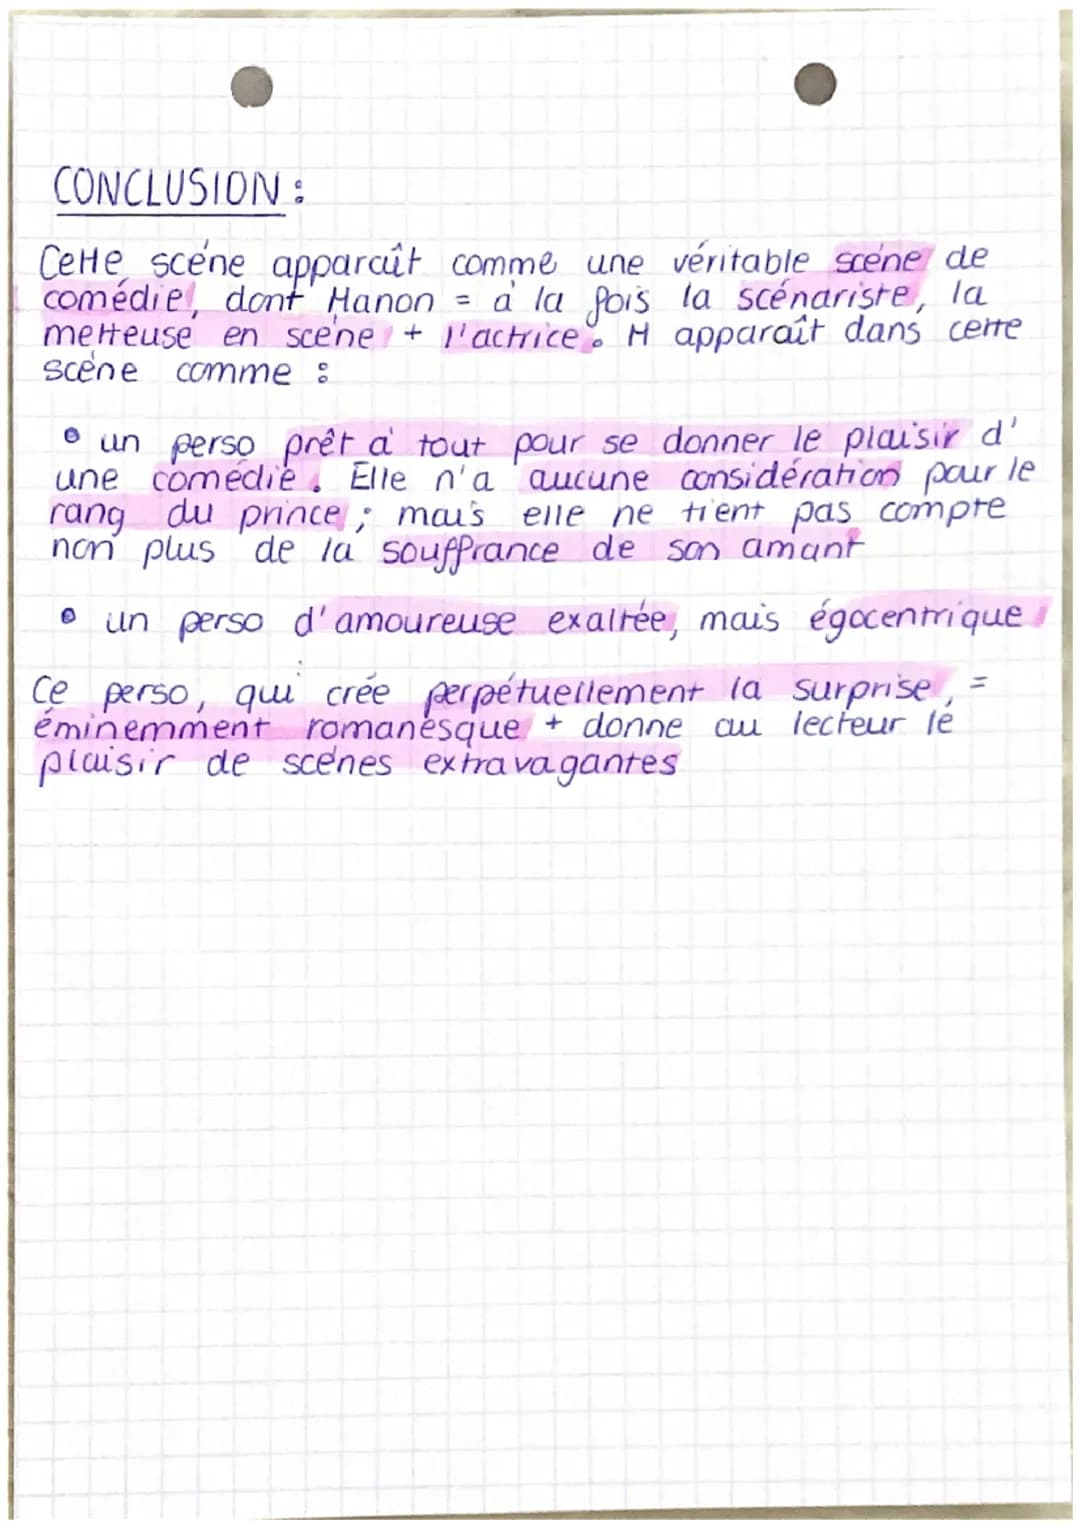 CONCLUSION :
Cette scène apparaît comme une véritable scène de
comédie, dont Manon = à la fois la scénariste, la
metteuse en scène + l'actrice. M apparaît dans cette
scène comme :
• un perso prêt à tout pour se donner le plaisir d'
une comédie. Elle n'a aucune considération pour le
rang du prince ; mais elle ne tient pas compte
non plus de la souffrance de son amant
• un perso d'amoureuse exaltée, mais égocentrique
Ce perso, qui crée perpétuellement la surprise, =
éminemment romanesque + donne au lecteur le
plaisir de scènes extravagantes